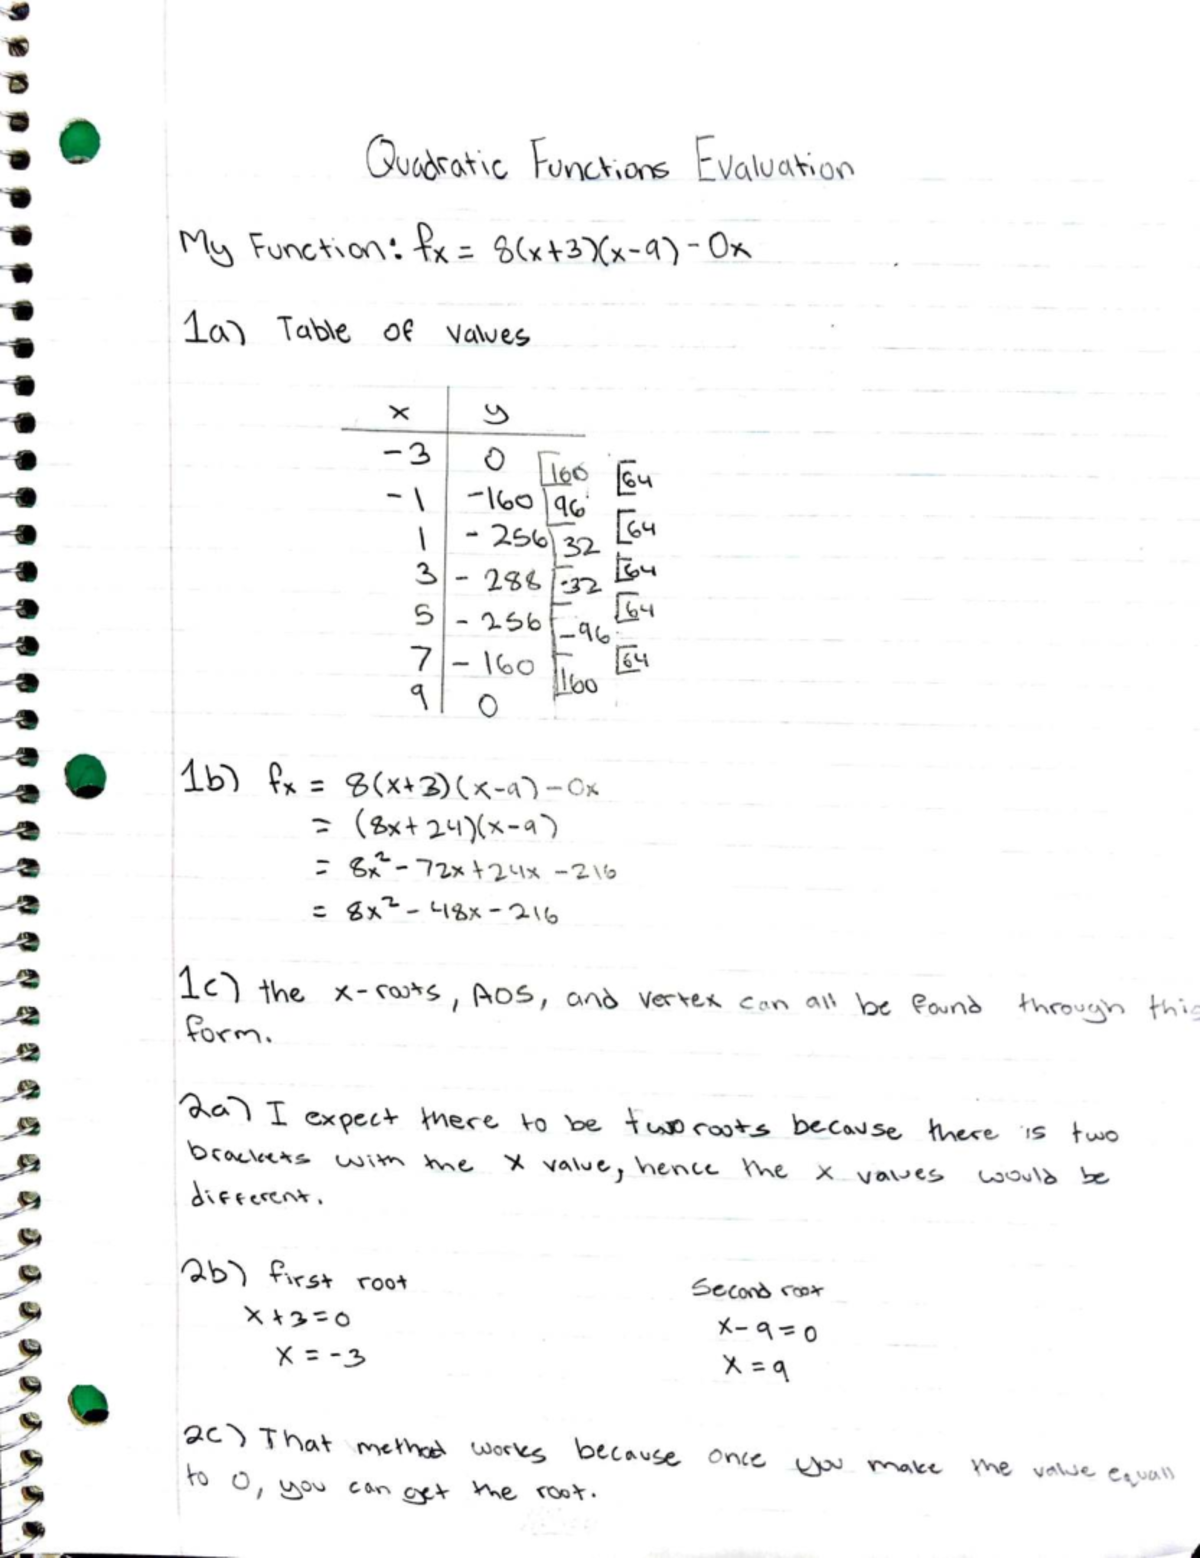 Quadratic Functions Evaluation
My Function: fx = 8(x+3)(x-9)-0x
1a) Table of values
x y
-3 0 160 64
-1 -160 96 64
1 -256 32 64
3 -288 -32 64
5 -256 -96 64
7 -160 160
9 0
1b) fx = 8(x+3)(x-9)-0x
= (8x+24)(x-9)
= 8x²-72x+24x-216
= 8x²-48x-216
1c) the x-roots, AOS, and vertex can all be found through this
form.
2a) I expect there to be two roots because there is two
brackets with the x value, hence the x values would be
different.
2b) first root Second root
x+3=0 x-9=0
x=-3 x=9
2c) That method works because once you make the value equall
to 0, you can get the root.